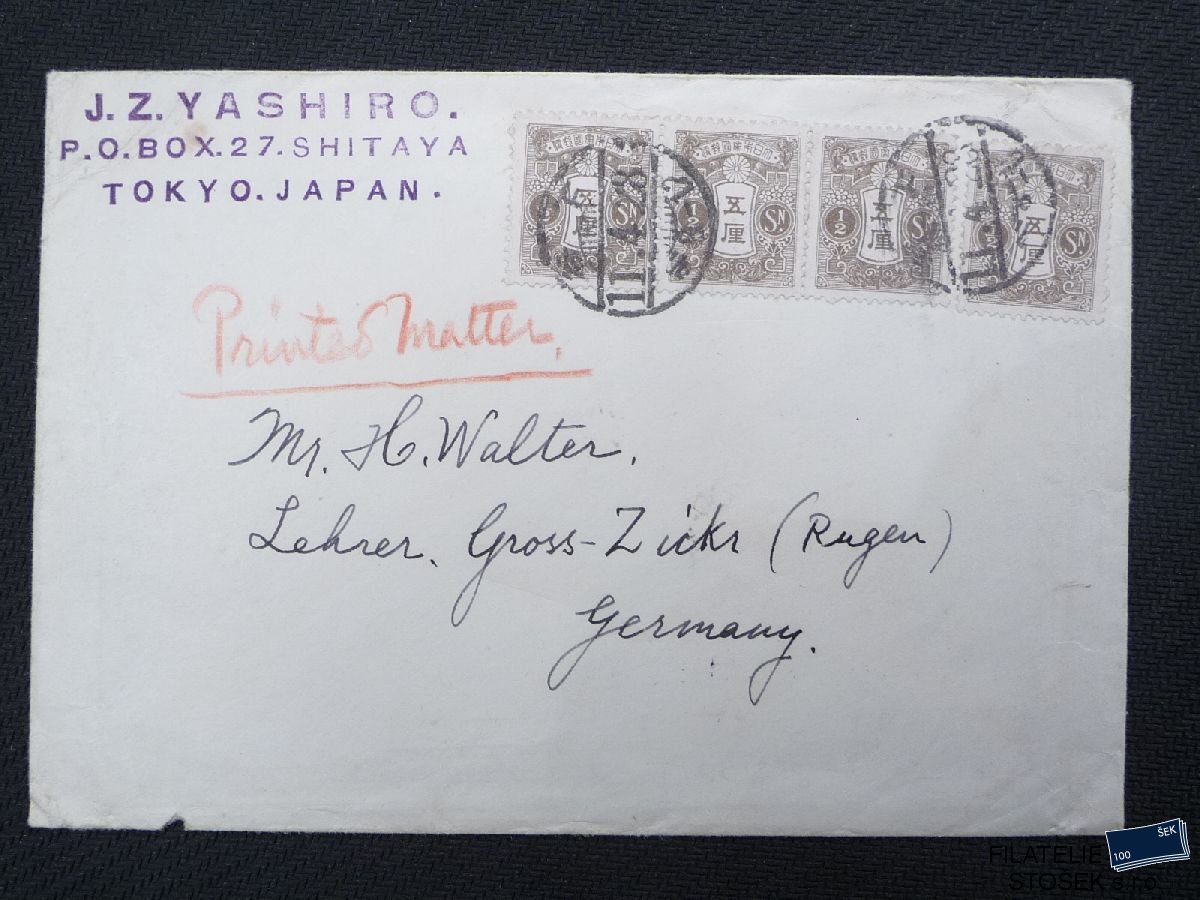 J.Z.YASHIRO.
P.O.BOX.27.SHITAYA
TOKYO.JAPAN.
大日本帝國郵便
1/2 五厘 SN
1/2 五厘 SN
1/2 五厘 SN
1/2 五厘 SN
11.4.28
11.4.28
Printed Matter.
Mr. H. Walter.
Lehrer. Gross-Zickr (Rugen)
Germany.
100 ŠEK
FILATELIE
STOŠEK s.r.o.